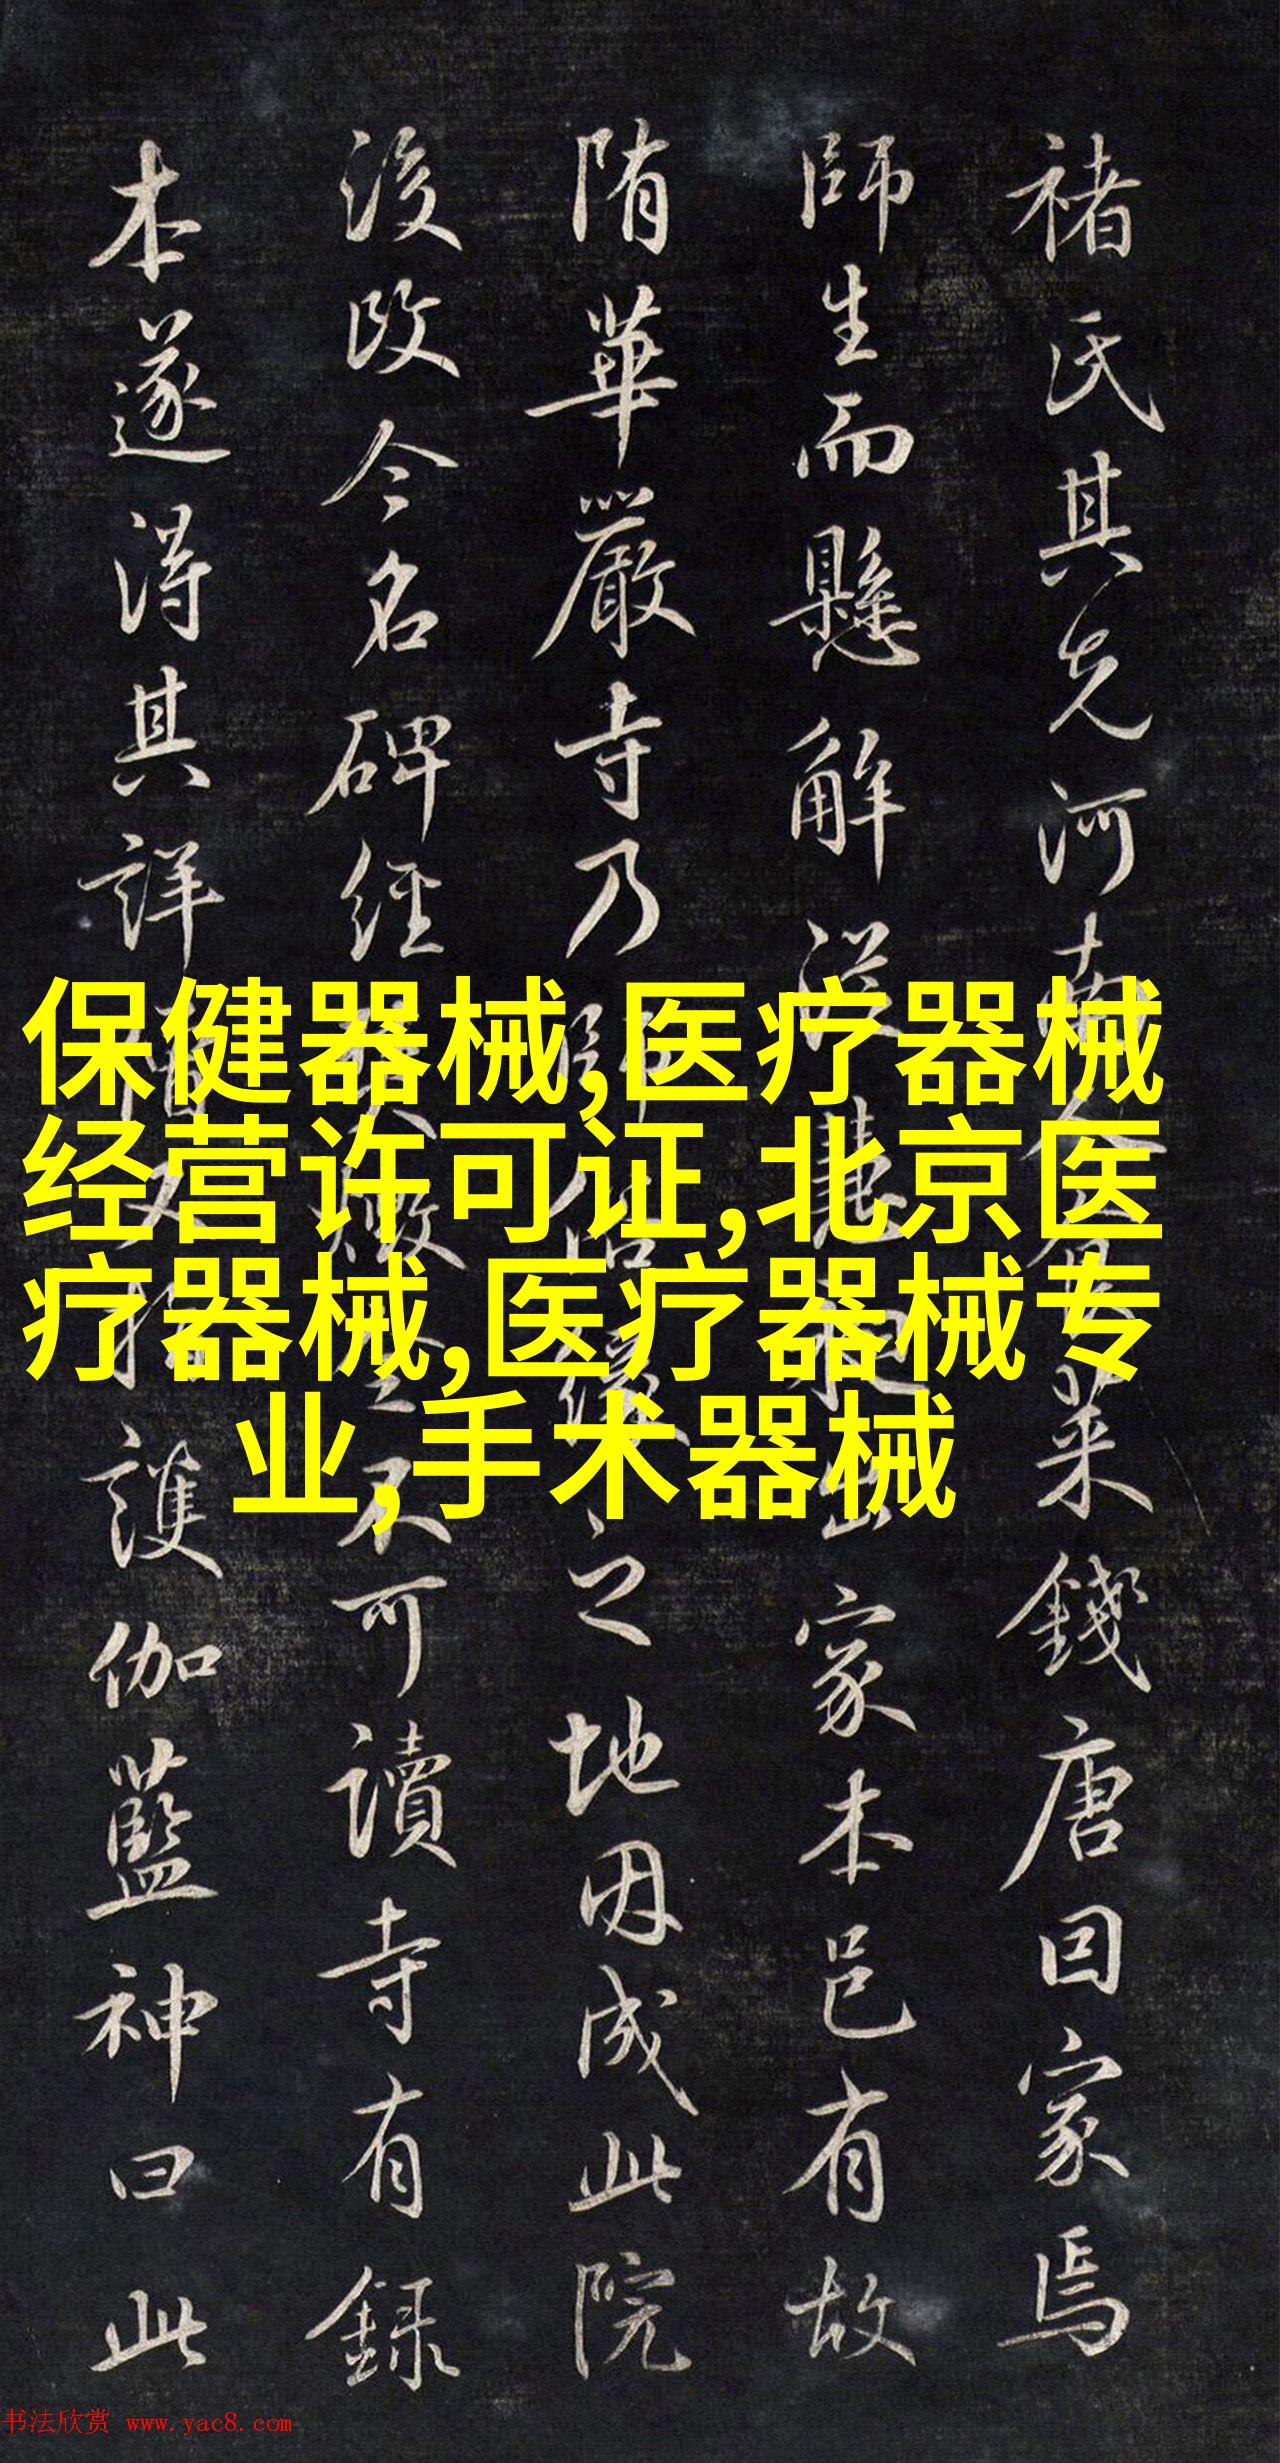 褚氏其先河南
菜錢唐因家焉
師生而懸解
家本邑有故
隋華嚴寺乃
之地因成此院
後改今名碑經
不可讀寺有錄
本遂得其詳
護伽藍神曰此
保健器械,医疗器械
经营许可证,北京医
疗器械,医疗器械专
业,手术器械
书法欣赏 www.yac8.com